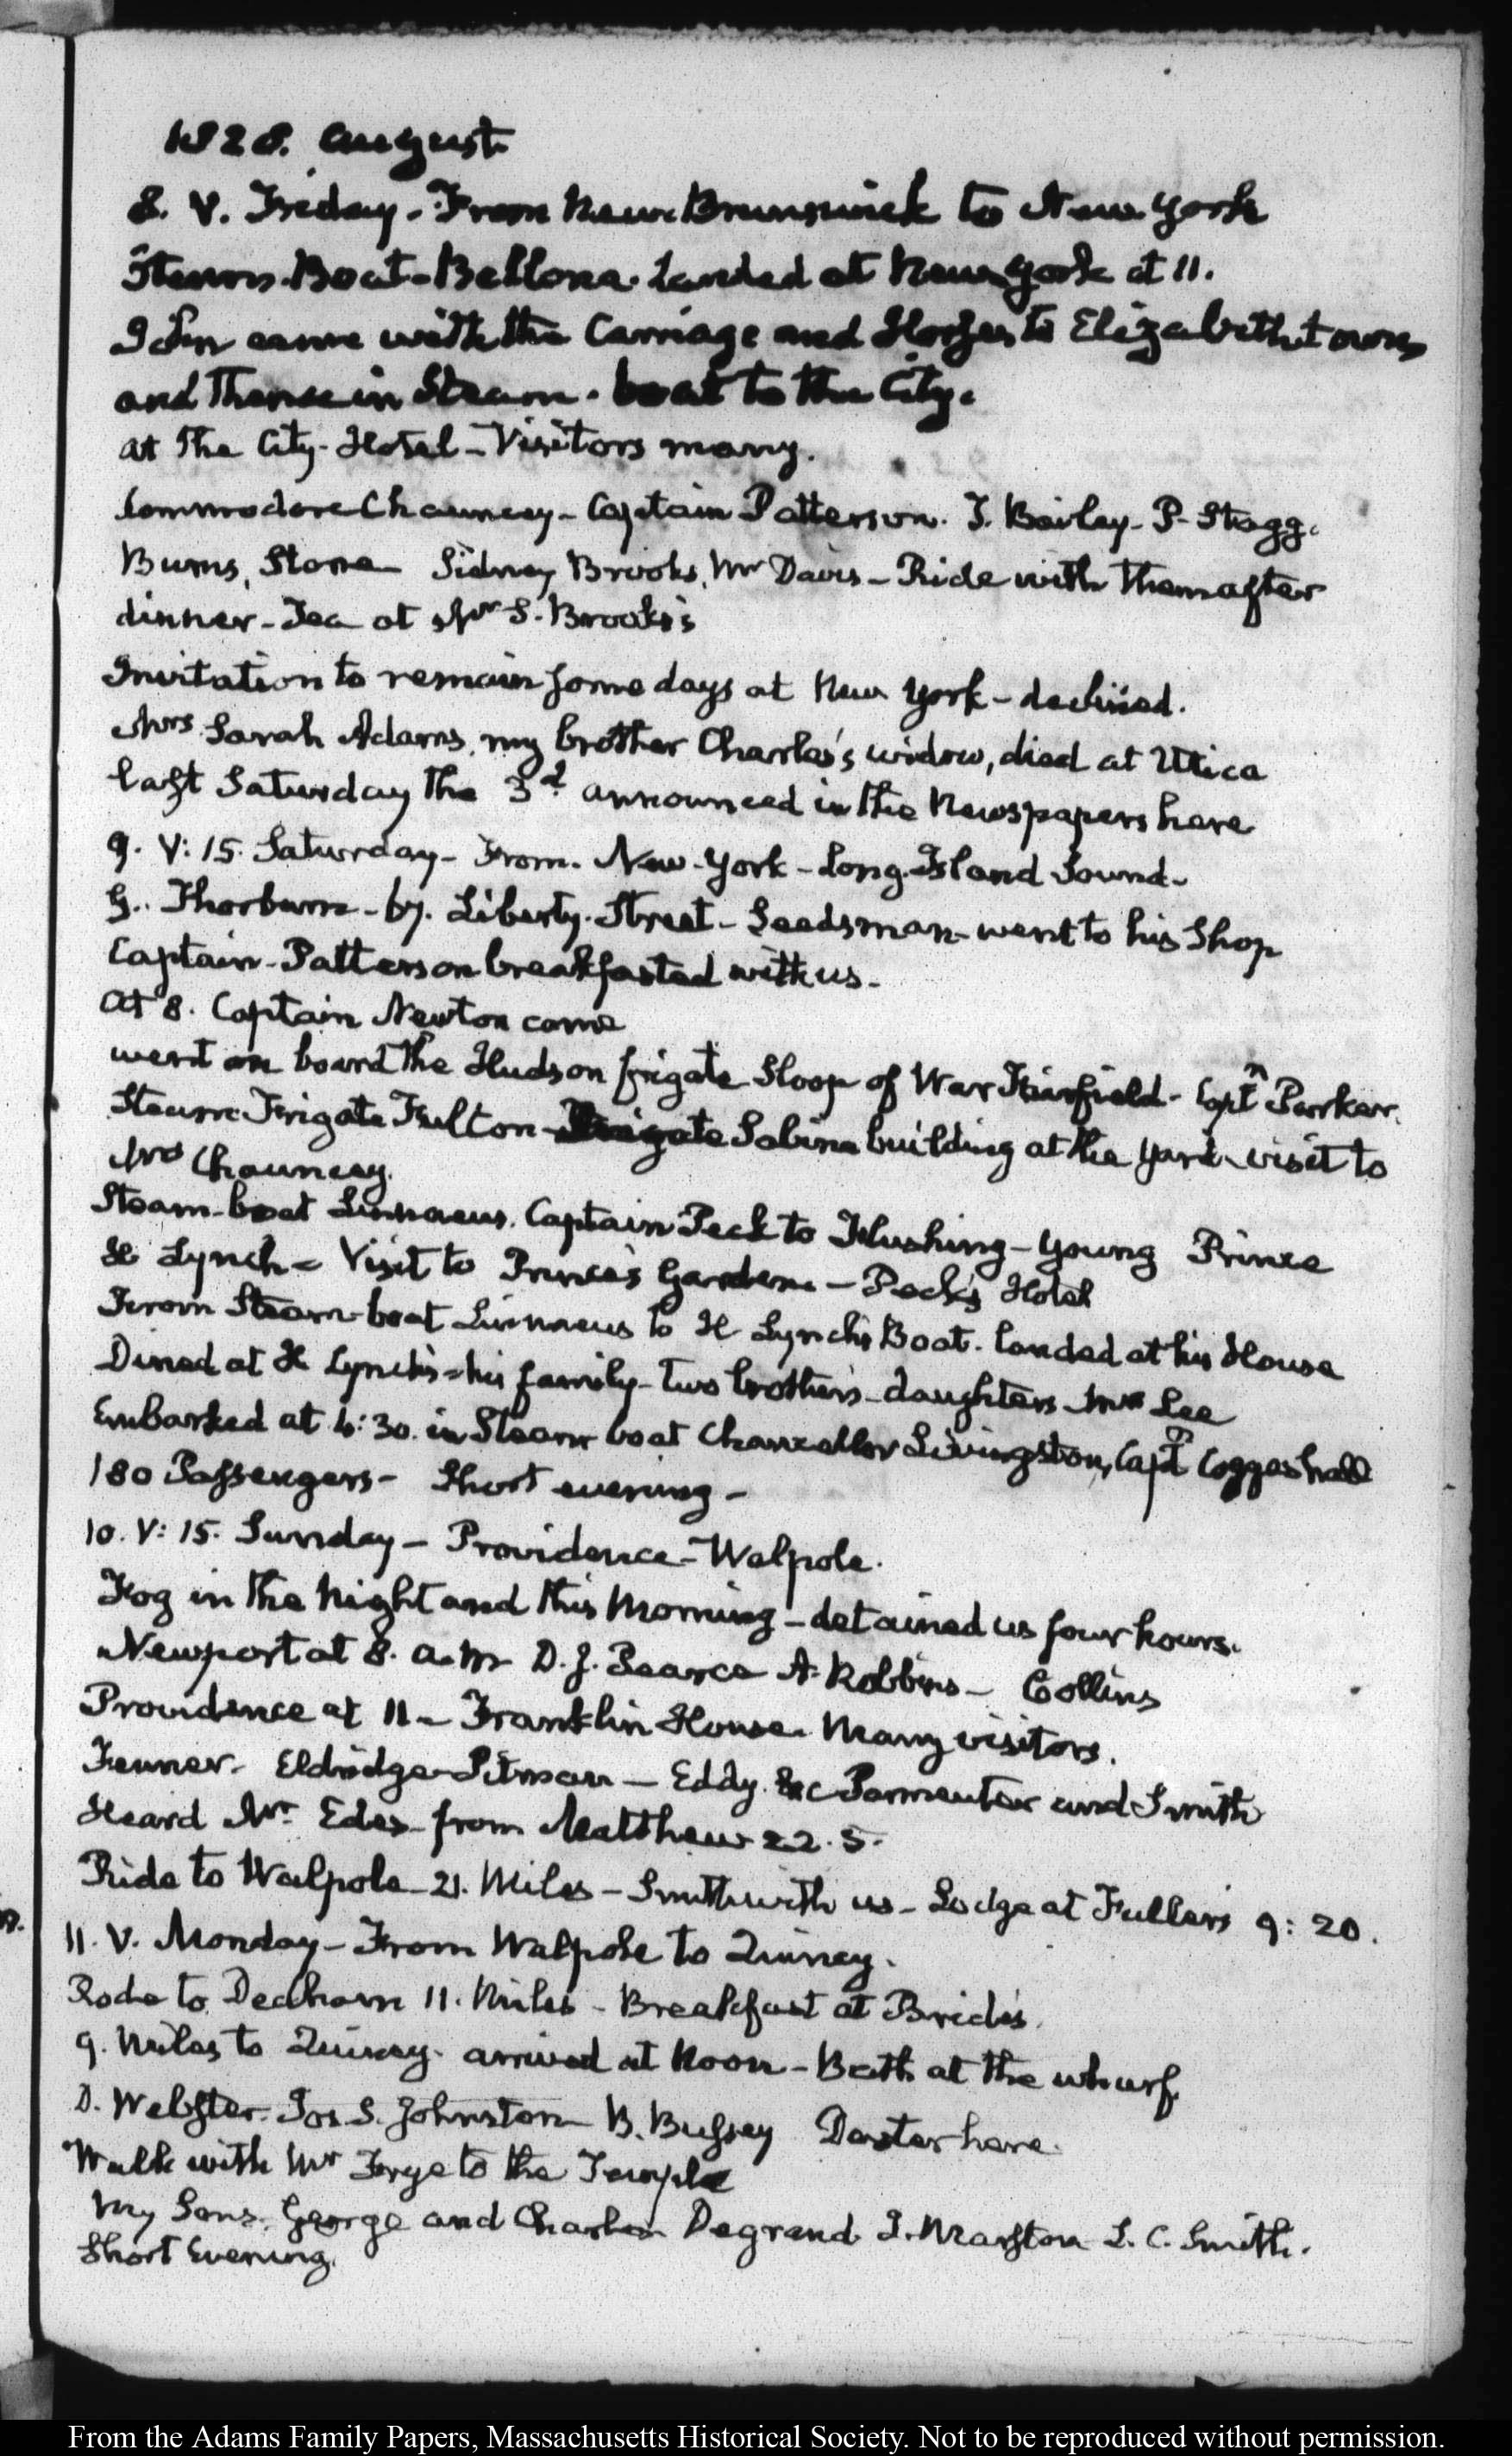 1828. August
8. V. Friday - From New Brunswick to New York
Steam-Boat-Bellona. Landed at New York at 11.
John came with the Carriage and Horses to Elizabethtown
and thence in Steam-boat to the City.
at the City-Hotel - Visitors many.
Commodore Chauncey - Captain Patterson. T. Bailey - P. Stagg.
Burns, Stone Sidney Brooks, Mr Davis - Ride with them after
dinner - Tea at Mr S. Brooks's
Invitation to remain some days at New York - declined.
Mrs Sarah Adams, my brother Charles's widow, died at Utica
last Saturday the 3d. announced in the Newspapers here
9. V: 15. Saturday - From New-York - Long-Island Sound -
G. Thorburn - 67. Liberty-Street - Seedsman - went to his Shop
Captain-Patterson breakfasted with us -
At 8. Captain Newton came
went on board the Hudson frigate Sloop of War Fairfield - Captn Parker.
Steam Frigate Fulton - Frigate Sabine building at the Yard - visit to
Mrs Chauncey.
Steam-boat Linnaeus. Captain Peck to Flushing - young Prince
H Lynch - Visit to Prince's Gardens - Peck's Hotel
From Steam-boat Linnaeus to H Lynch's Boat. landed at his House
Dined at H Lynch's - his family - two brothers - daughters - Mrs Lee
Embarked at 6:30. in Steam boat Chancellor Livingston, Captn Coggeshall
180 Passengers - Short evening -
10. V: 15. Sunday - Providence - Walpole.
Fog in the Night and this Morning - detained us four hours.
Newport at 8. A.M D. J. Pearce A. Robbins - Collins
Providence at 11 - Franklin House. Many visitors.
Fenner. Eldridge Pitman - Eddy. &c Parmenter and Smith
Heard Mr. Edes - from Matthew 22. 5.
Ride to Walpole - 21. Miles - Smith with us - Lodge at Fuller's 9: 20.
11. V. Monday - From Walpole to Quincy.
Rode to Dedham 11. Miles - Breakfast at Bride's.
9. Miles to Quincy. arrived at Noon - Bath at the wharf.
D. Webster. Jos. S. Johnston B. Bussey Dexter here.
Walk with Mr Frye to the Temple
My Sons. George and Charles Degrand J. Marston L. C. Smith.
Short Evening.
From the Adams Family Papers, Massachusetts Historical Society. Not to be reproduced without permission.